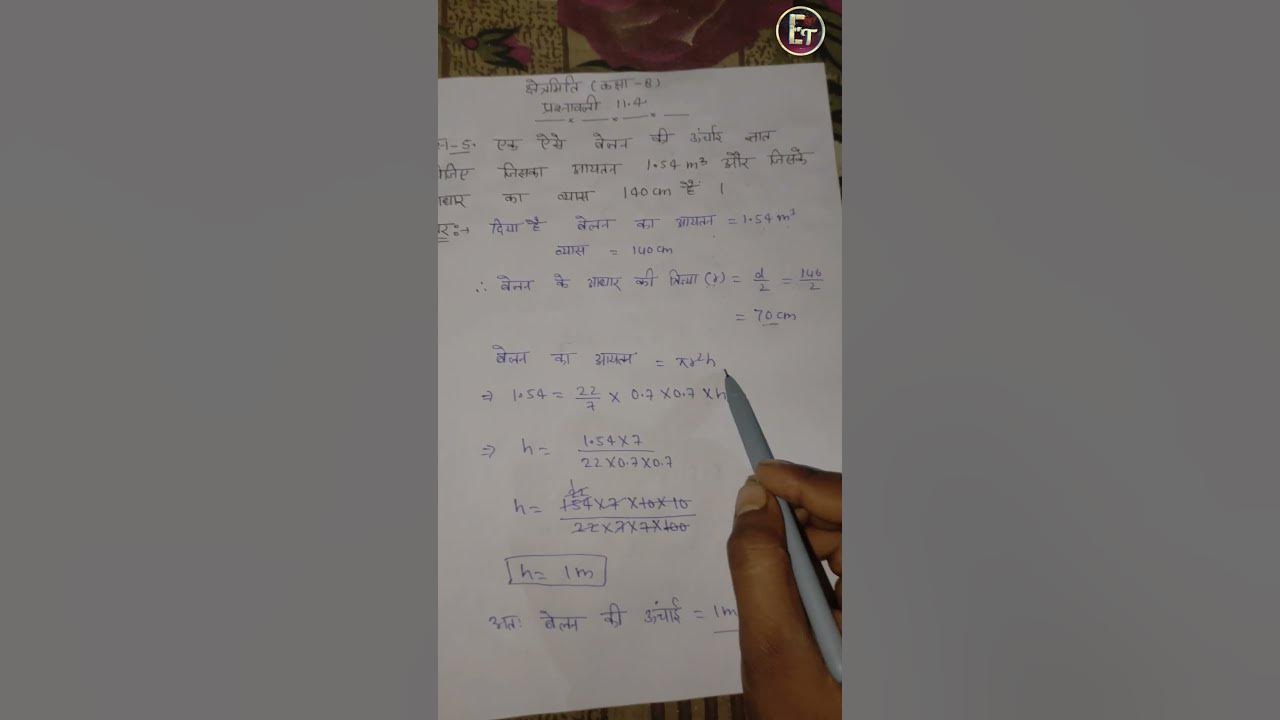 ET
क्षेत्रमिति (कक्षा -8)
प्रश्नावली 11.4.
-5. एक ऐसे बेलन की ऊंचाई ज्ञात
जिए जिसका आयतन 1.54 m³ और जिसके
आधार का व्यास 140 cm है ।
दिया है बेलन का आयतन = 1.54 m³
व्यास = 140 cm
∴ बेलन के आधार की त्रिज्या (r) = d/2 = 140/2
= 70 cm
बेलन का आयतन = πr²h
⇒ 1.54 = 22/7 × 0.7 × 0.7 × h
⇒ h = 1.54 × 7 / 22 × 0.7 × 0.7
h = 154 × 7 × 10 × 10 / 22 × 7 × 7 × 100
h = 1m
अतः बेलन की ऊंचाई = 1m